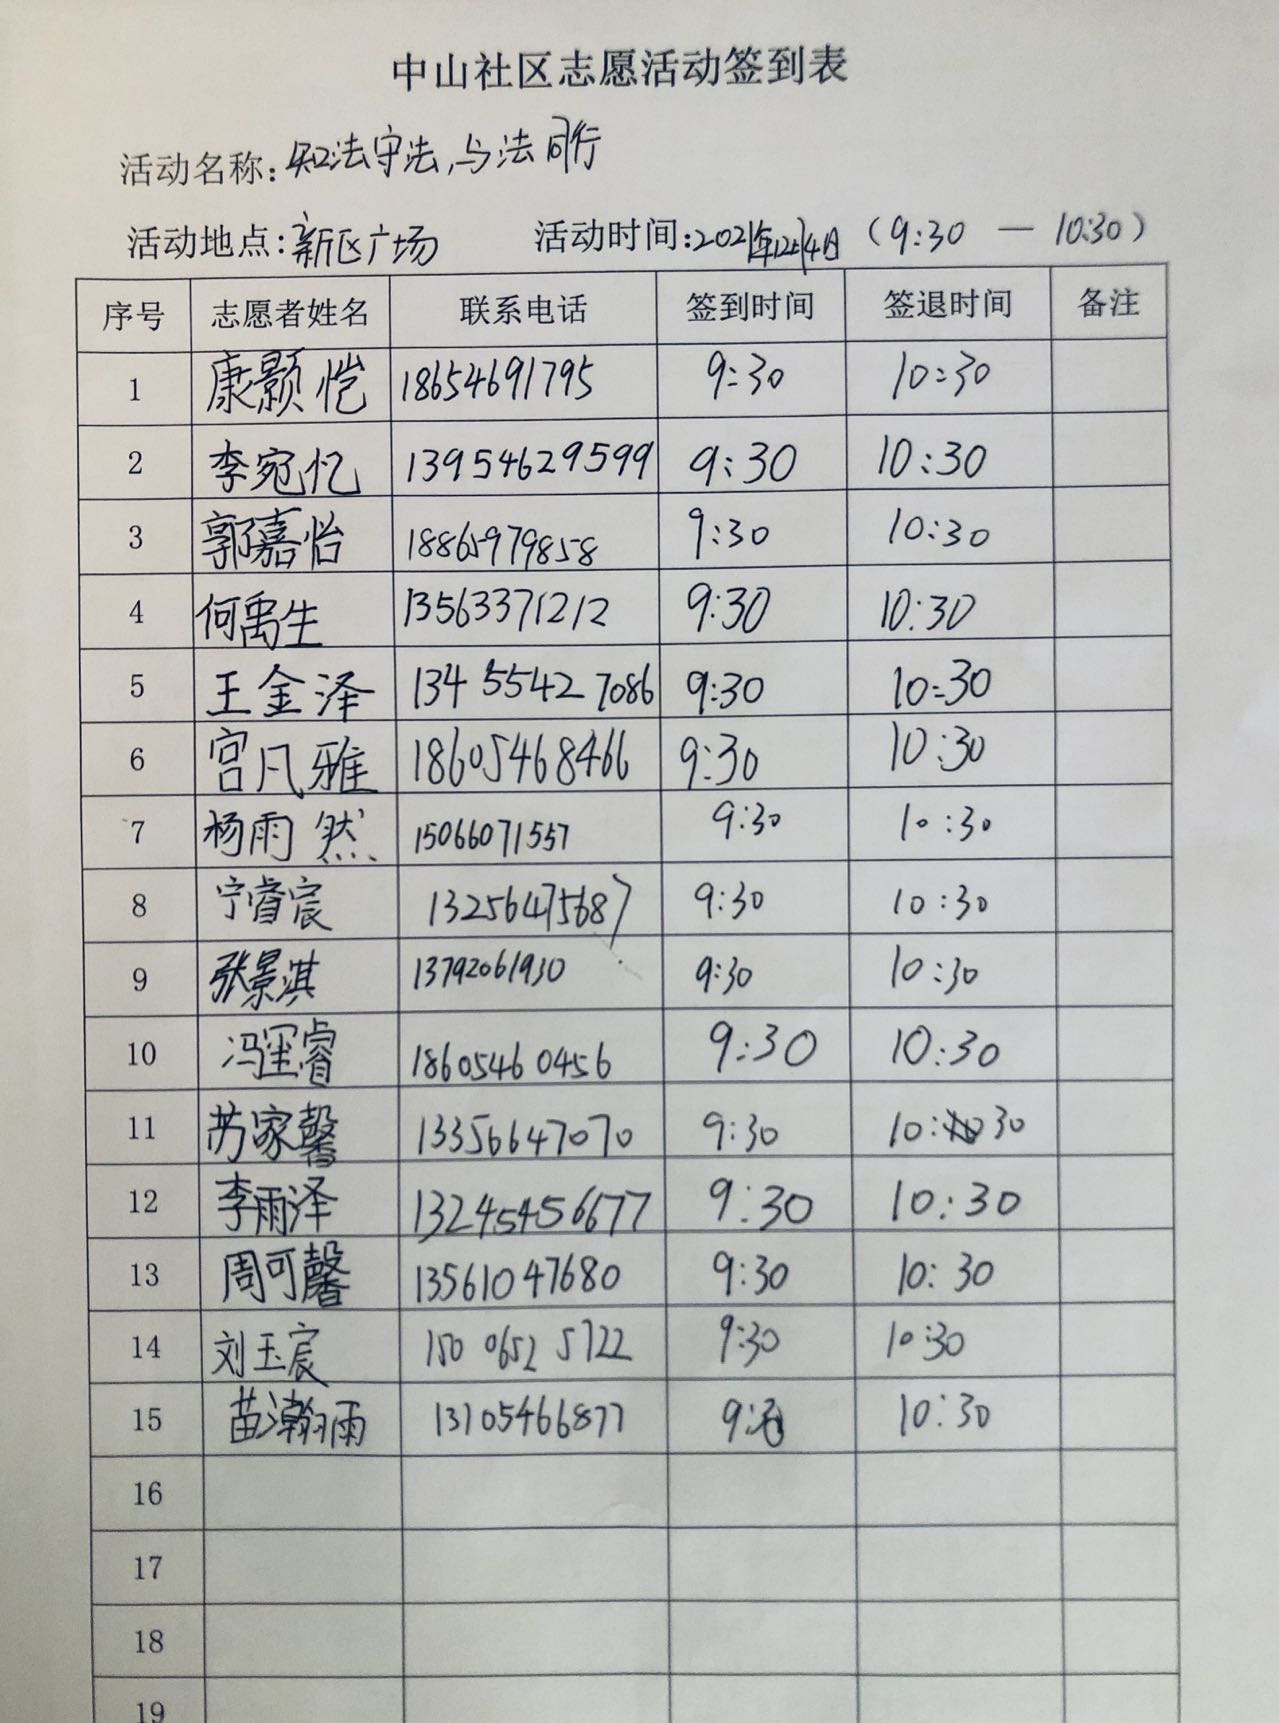 中山社区志愿活动签到表
活动名称:知法守法,与法同行
活动地点:新区广场 活动时间:2021年12月4日(9:30 — 10:30)
序号 志愿者姓名 联系电话 签到时间 签退时间 备注
1 康颢恺 18654691795 9:30 10:30
2 李宛忆 13954629599 9:30 10:30
3 郭嘉怡 18865979858 9:30 10:30
4 何禹生 13563371212 9:30 10:30
5 王金泽 134 5542 7086 9:30 10:30
6 宫凡雅 18605468466 9:30 10:30
7 杨雨然 15066071557 9:30 10:30
8 宁睿宸 13256475687 9:30 10:30
9 张景淇 13792061930 9:30 10:30
10 冯睿 18605460456 9:30 10:30
11 苏家馨 13356647070 9:30 10:30
12 李雨泽 13245456677 9:30 10:30
13 周可馨 13561047680 9:30 10:30
14 刘玉宸 150 0652 5722 9:30 10:30
15 苗瀚雨 13105466877 10:30
16
17
18
19